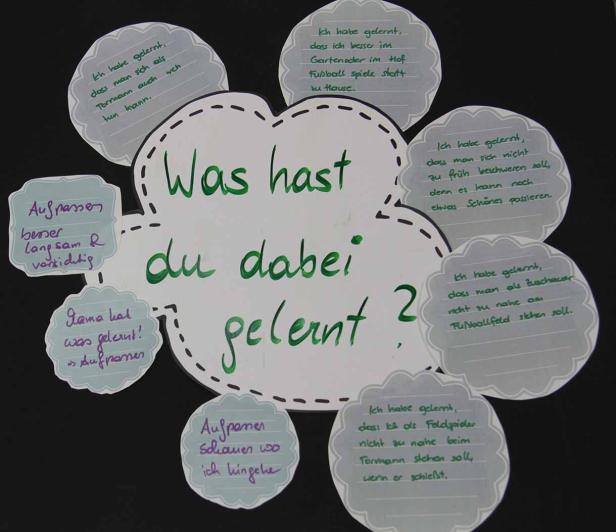 Was hast
du dabei
gelernt?
Ich habe gelernt,
dass man sich als
Tormann auch weh
tun kann.
Ich habe gelernt,
dass ich besser im
Garten oder im Hof
Fußball spiele statt
zu Hause.
Ich habe gelernt,
dass man sich nicht
zu früh beschweren soll,
denn es kann noch
etwas Schönes passieren.
Ich habe gelernt,
dass man als Zuschauer
nicht zu nahe am
Fußballfeld stehen soll.
Ich habe gelernt,
dass als Feldspieler
nicht zu nahe beim
Tormann stehen soll,
wenn er schießt.
Aufpassen
schauen wo
ich hingehe
Mama hat
was gelernt!
Aufpassen
Aufpassen
besser
langsam &
vorsichtig